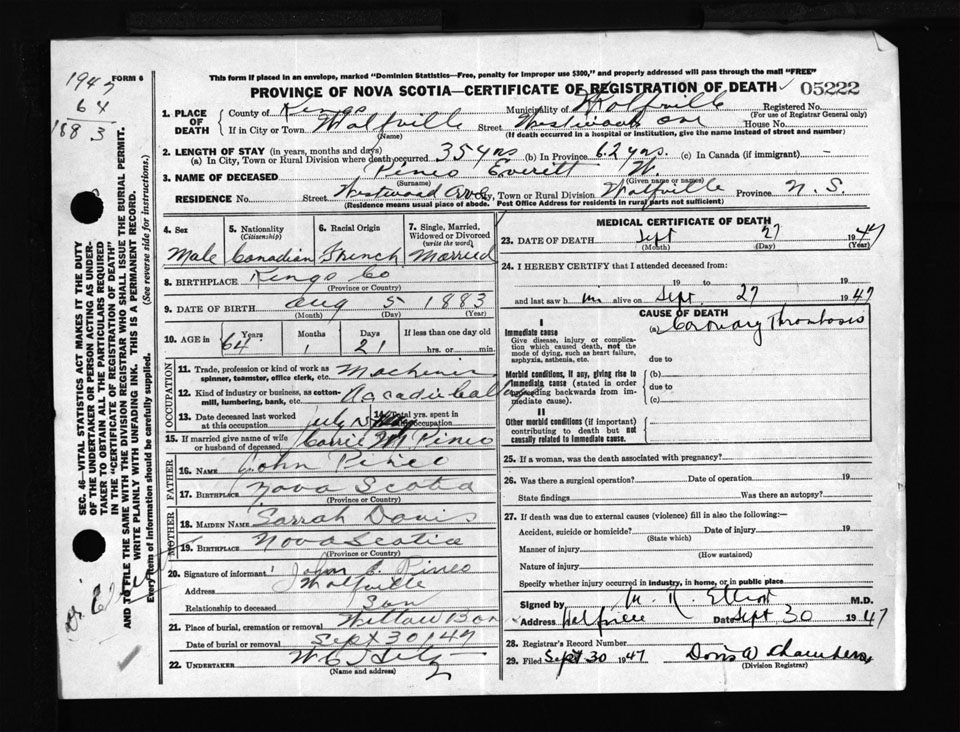 This form if placed in an envelope, marked "Dominion Statistics—Free, penalty for improper use $300," and properly addressed will pass through the mail "FREE"
1947
64
1883
FORM 6
PROVINCE OF NOVA SCOTIA—CERTIFICATE OF REGISTRATION OF DEATH 05222
1. PLACE OF DEATH County of Kings Municipality of Wolfville Registered No. (For use of Registrar General only)
If in City or Town Wolfville (Name) Street Westwood Ave House No.
(If death occurred in a hospital or institution, give the name instead of street and number)
2. LENGTH OF STAY (in years, months and days)
(a) In City, Town or Rural Division where death occurred 35 yrs (b) In Province 62 yrs. (c) In Canada (if immigrant) —
3. NAME OF DECEASED Pineo Everett W.
(Surname) (Given name or names)
RESIDENCE No. Street Westwood Ave City, Town or Rural Division Wolfville Province N. S.
(Residence means usual place of abode. Post Office Address for residents in rural parts not sufficient)
4. Sex 5. Nationality (Citizenship) 6. Racial Origin 7. Single, Married, Widowed or Divorced (write the word)
Male Canadian French Married
8. BIRTHPLACE Kings Co
(Province or County)
9. DATE OF BIRTH Aug 5 1883
(Month) (Day) (Year)
10. AGE in Years Months Days If less than one day old
64 1 21 hrs. or min.
OCCUPATION
11. Trade, profession or kind of work as spinner, teamster, office clerk, etc. Machinis
12. Kind of industry or business, as cotton-mill, lumbering, bank, etc. Accadia
13. Date deceased last worked at this occupation July 14. Total yrs. spent in this occupation
15. If married give name of wife or husband of deceased Carrie M Pineo
FATHER
16. NAME John Pineo
17. BIRTHPLACE Nova Scotia
(Province or Country)
MOTHER
18. MAIDEN NAME Sarrah Davis
19. BIRTHPLACE Nova Scotia
(Province or Country)
20. Signature of informant John C. Pineo
Address Wolfville
Relationship to deceased Son
21. Place of burial, cremation or removal Willow
Date of burial or removal Sept 30/47
22. UNDERTAKER
(Name and address)
MEDICAL CERTIFICATE OF DEATH
23. DATE OF DEATH Sept 27 1947
(Month) (Day) (Year)
24. I HEREBY CERTIFY that I attended deceased from:
19 to 19
and last saw him alive on Sept. 27 1947
CAUSE OF DEATH
I
Immediate cause (a) Coronary Thrombosis
Give disease, injury or complication which caused death, not the mode of dying, such as heart failure, asphyxia, asthenia, etc. due to
Morbid conditions, if any, giving rise to immediate cause (stated in order proceeding backwards from immediate cause). (b)
due to
(c)
II
Other morbid conditions (if important) contributing to death but not causally related to immediate cause.
25. If a woman, was the death associated with pregnancy?
26. Was there a surgical operation? Date of operation 19
State findings Was there an autopsy?
27. If death was due to external causes (violence) fill in also the following:—
Accident, suicide or homicide? Date of injury 19
(State which)
Manner of injury
(How sustained)
Nature of injury
Specify whether injury occurred in industry, in home, or in public place
Signed by M. R. Elliott M.D.
Address Wolfville Date Sept 30 1947
28. Registrar's Record Number
29. Filed Sept 30 1947 Doris W Chambers
(Division Registrar)
SEC. 46—VITAL STATISTICS ACT MAKES IT THE DUTY
OF THE UNDERTAKER OR PERSON ACTING AS UNDER-
TAKER TO OBTAIN ALL THE PARTICULARS REQUIRED
IN THE "CERTIFICATE OF REGISTRATION OF DEATH"
AND TO FILE THE SAME WITH THE DIVISION REGISTRAR WHO SHALL ISSUE THE BURIAL PERMIT.
WRITE PLAINLY WITH UNFADING INK. THIS IS A PERMANENT RECORD.
Every item of information should be carefully supplied. (See reverse side for instructions.)